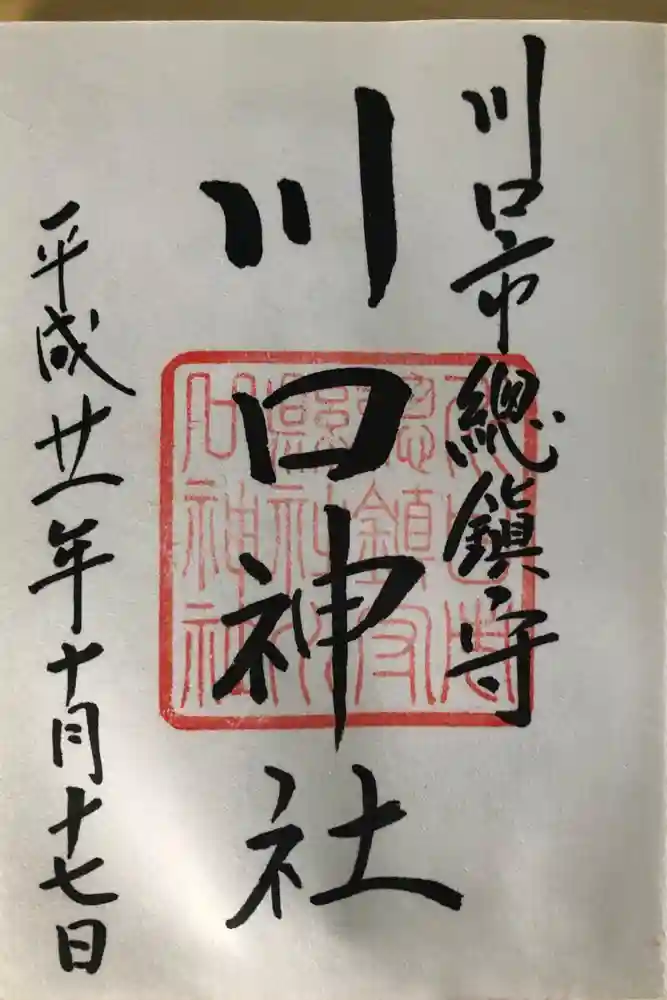 川口市總鎮守
川口神社
平成廿一年十月十七日